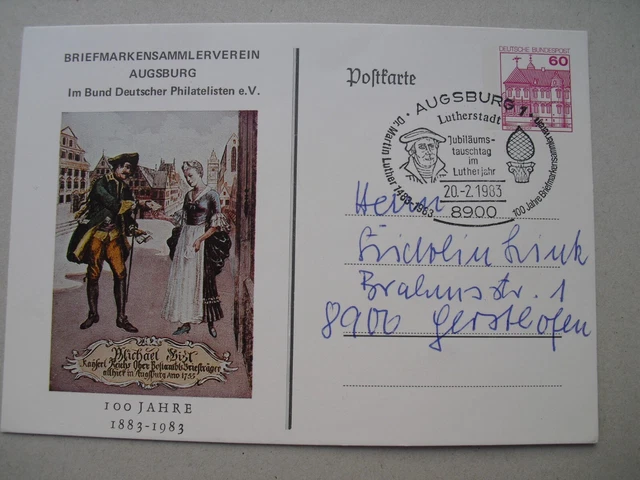 BRIEFMARKENSAMMLERVEREIN
AUGSBURG
Im Bund Deutscher Philatelisten e.V.
Michael Bist
Kayserl Reichs Ober Postambts Briefträger
allhier in Augsburg Ano 1755
100 JAHRE
1883-1983
Postkarte
DEUTSCHE BUNDESPOST
60
AUGSBURG 1
Lutherstadt
Jubiläums-
tauschtag
im
Lutherjahr
20.-2.1983
8900
Dr. Martin Luther 1483-1983
100 Jahre Briefmarkensammlerverein
Herrn
Fridolin Link
Brahmsstr. 1
8906 Gersthofen